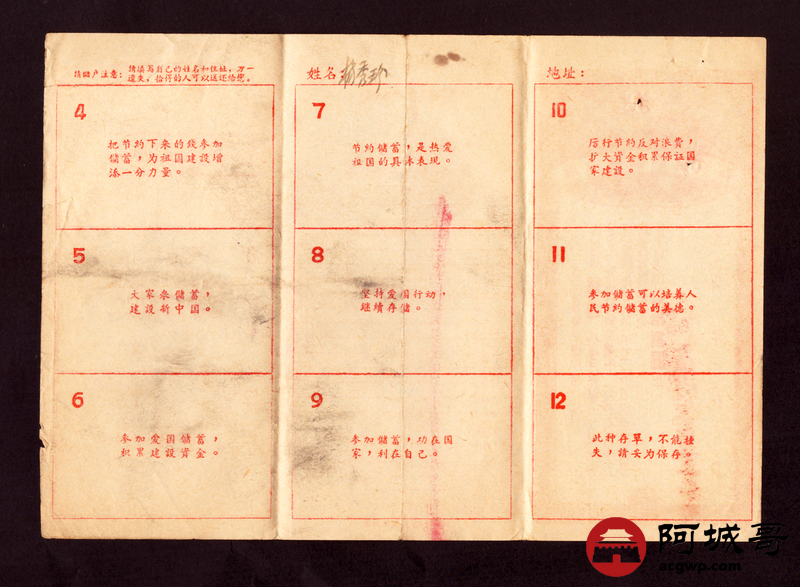 請储户注意：请填写自己的姓名和住址，万一
遗失，拾得的人可以送还给您。
姓名
地址：
4
把节約下来的钱参加
儲蓄，为祖国建設增
添一分力量。
5
大家来儲蓄，
建設新中国。
6
参加爱国儲蓄，
积累建設資金。
7
节約儲蓄，是热爱
祖国的具体表现。
8
坚持爱国行动，
继續存儲。
9
参加儲蓄，功在国
家，利在自己。
10
厉行节約反对浪費，
扩大資金积累保証国
家建設。
11
参加儲蓄可以培养人
民节約儲蓄的美德。
12
此种存單，不能挂
失，請妥为保存。
阿城哥
acgwp.com